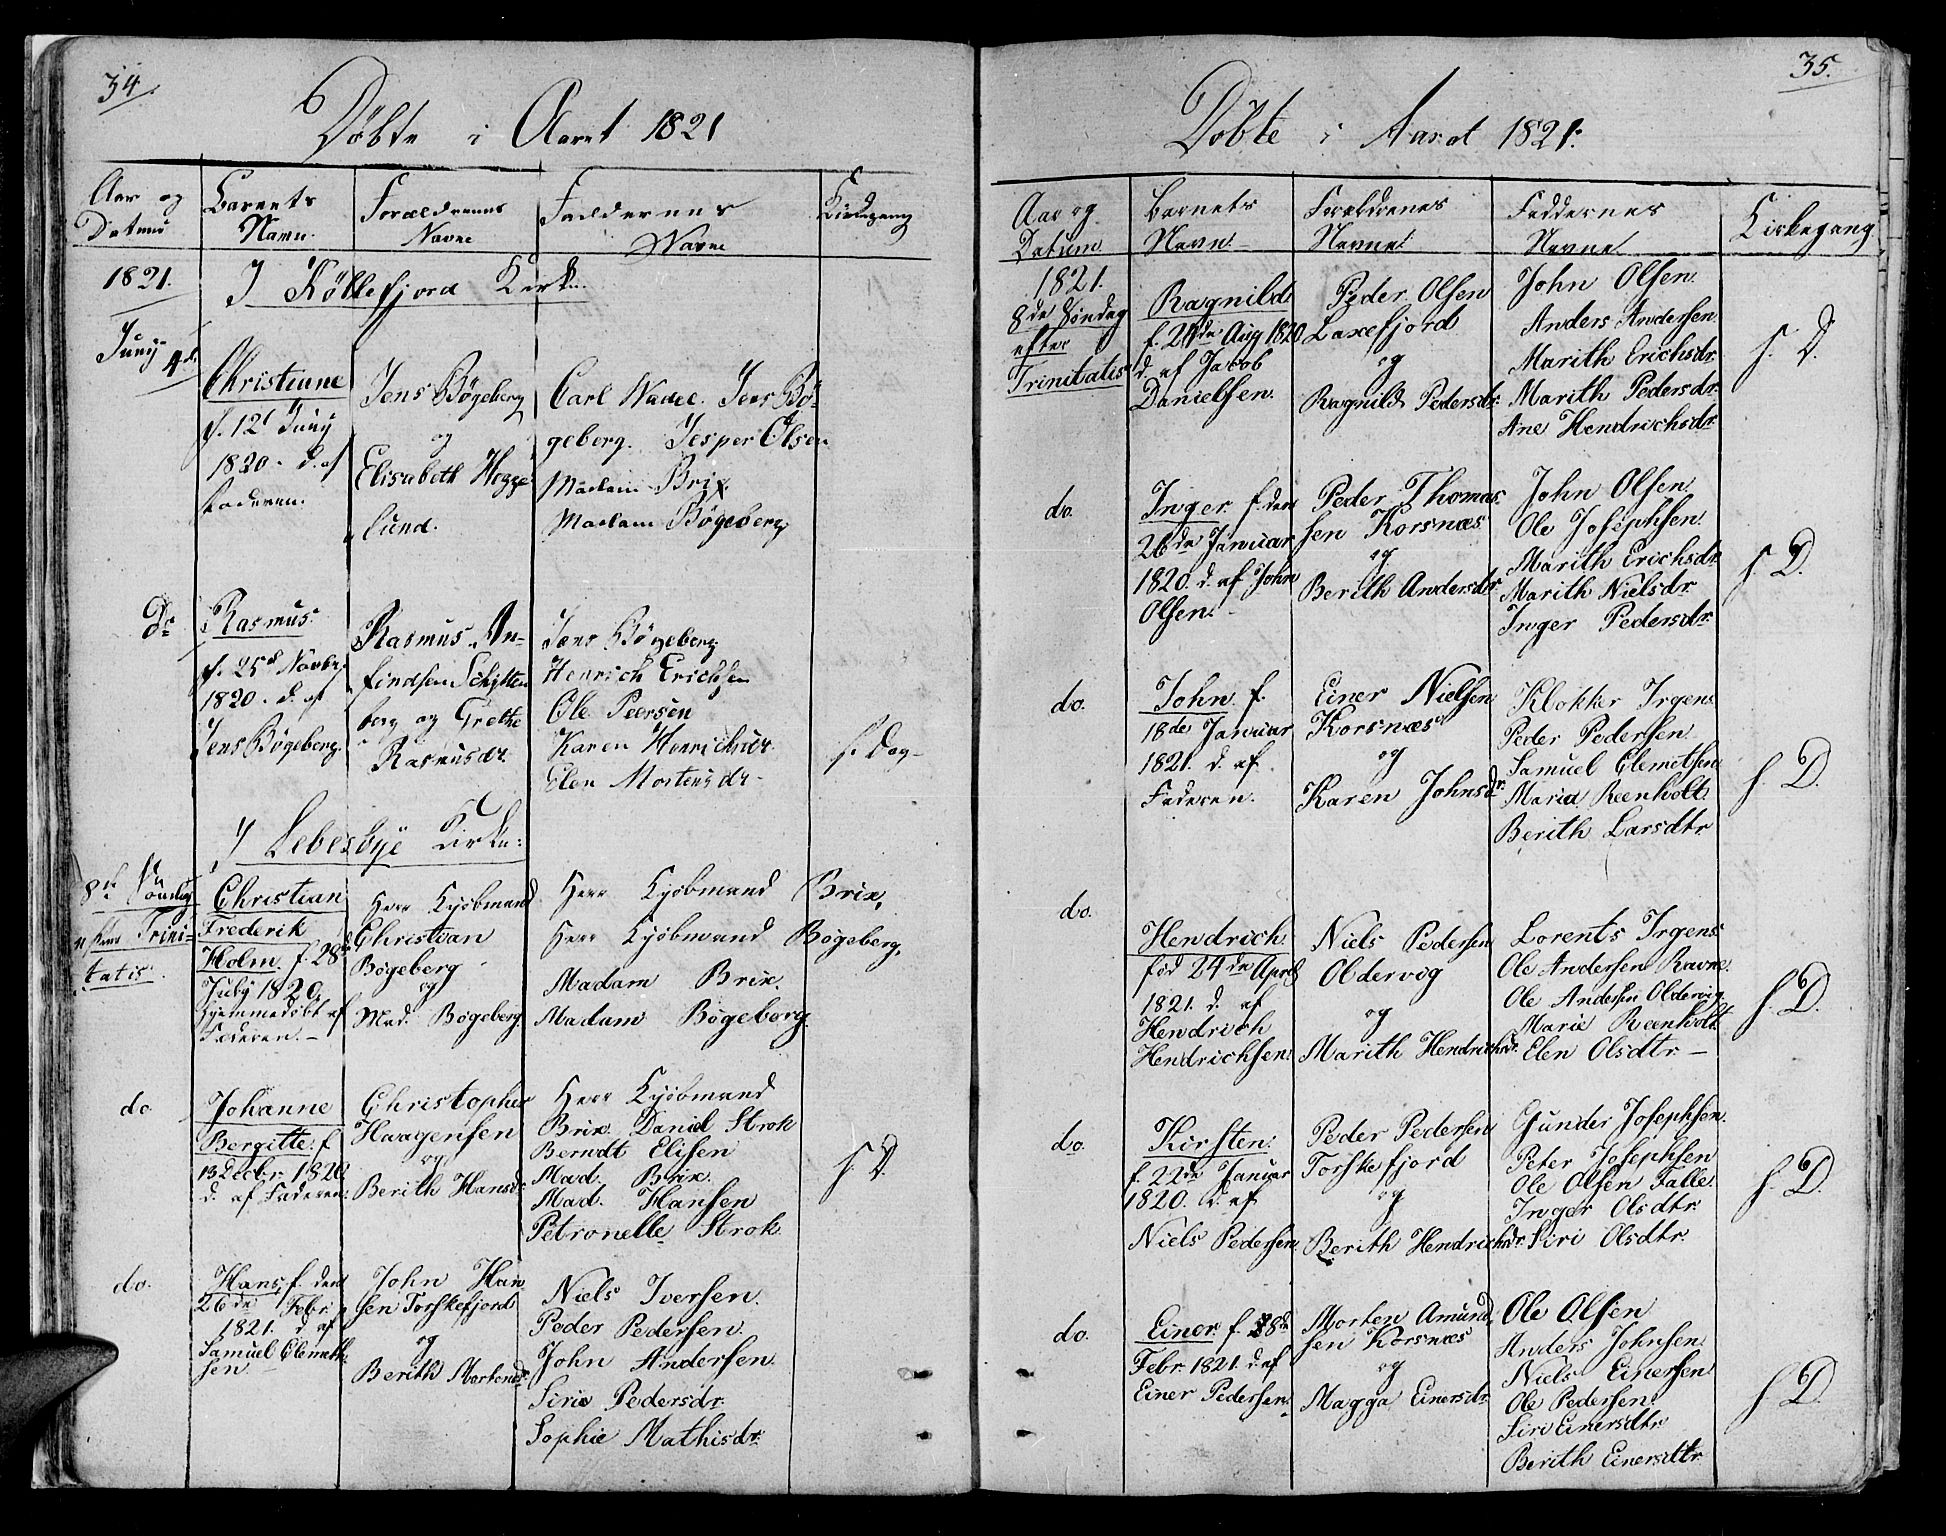 34.
Döbte i Aaret 1821
Aar og
Datum
Barnets
Navn.
Forældrenes
Navne
Faddernes
Navne
Kirkegang
1821.
I Köllefjord Kirke.
Juny 4de
Christiane
f. 12t Juny
1820. d. af
Faderen.
Jens Bögeberg
og
Elisabeth Hegge
lund.
Carl Jens Bö-
geberg. Jesper Olsen
Madam Brix
Madam Bögeberg
Do
Rasmus.
f. 25d Novbr.
1820. d. af
Jens Bögeberg.
Rasmus An-
findsen Schjtten
berg og Grethe
Rasmusdr.
Jens Bögeberg
Henrich Erichsen
Ole Peersen
Karen Henrichsdr.
Elen Mortensdr.
s. Dag
I Lebesbye Kirke:
8de Söndag
efter Trini-
tatis.
Christian
Frederik
Holm. f. 28de
July 1820.
hjemmedöbt af
Faderen.
Herr Kjöbmand
Christian
Bögeberg
og
Mad. Bögeberg
Herr Kjöbmand Brix,
Herr Kjöbmand Bögeberg,
Madam Brix.
Madam Bögeberg.
do.
Johanne
Bergitte. f.
13 Decbr. 1820.
d. af Faderen.
Christopher
Haagensen
og
Berith Hansdr.
Herr Kjöbmand
Brix. Daniel Strok
Berndt Elisen
Mad. Brix.
Mad. Hansen
Petronelle Strok.
s. D.
do.
Hans, f. den
26de Febr.
1821. d. af
Samuel Clemeth
sen.
John Han
sen Torskefjord
og
Berith Mortensdr.
Niels Iversen.
Peder Pedersen.
John Andersen.
Sirie Pedersdr.
Sophie Mathisdr.
35.
Döbte i Aaret 1821.
Aar og
Datum.
Barnets
Navn.
Foreldrenes
Navne.
Faddernes
Navne.
Kirkegang
1821.
8de Söndag
efter
Trinitatis
Ragnild
f. 24de Aug 1820
d. af Jacob
Danielsen.
Peder Olsen
Laxefjord
og
Ragnild Pedersdr.
John Olsen.
Anders Andersen.
Marith Erichsdr.
Marith Pedersdr.
Ane Hendrichsdr.
s. D.
do.
Inger f. den
26de Januar
1820. d. af John
Olsen.
Peder Thomas-
sen Korsnæs.
og
Berith Andersdr.
John Olsen
Ole Josephsen.
Marith Erichsdr.
Marith Nielsdr.
Inger Pedersdr.
s. D.
do.
John f.
18de Januar
1821. d. af
Faderen.
Einer Nielsen
Korsnæs
og
Karen Johnsdr.
Klokker Irgens
Peder Pedersen
Samuel Clemetsen
Maria Reenholt.
Berith Larsdtr
s. D.
do.
Hendrich.
fød 24de April
1821. d. af
Hendrich
Hendrichsen.
Niels Pedersen
Oldervog
og
Marith Hendrichsdr.
Lorents Irgens
Ole Andersen Ravne.
Ole Andersen Oldervig
Marie Reenholt
Elen Olsdtr
s. D.
do.
Kirsten.
f. 22de Januar
1820. d. af
Niels Pedersen.
Peder Pedersen
Torskefjord
og
Berith Hendrichsdr.
Gunder Josephsen.
Peter Josephsen
Ole Olsen Falle.
Inger Olsdtr.
Siri Olsdtr.
s. D.
do.
Einer. f. 28de
Febr. 1821. d. af
Einer Pedersen.
Morten Amund
sen Korsnæs
og
Magga Einersdr.
Ole Olsen
Anders Johnsen
Niels Einersen
Ole Pedersen.
Siri Einersdtr
Berith Einersdtr.
s. D.